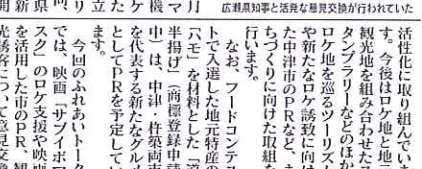 広瀬県知事と活発な意見交換が行われていた
活性化に取り組んでいま
す。今後はロケ地と地元
観光地を組み合わせたス
タンプラリーなどのほか
ロケ地を巡るツーリズム
や新たなロケ誘致に向け
た中津市のPRなど、ま
ちづくりに向けた取組を
行います。
なお、フードコンテス
トで入選した地元特産の
「ハモ」を材料とした「道
半揚げ」(商標登録申請
中)は、中津・杵築両市
を代表する新たなグルメ
としてPRを予定してい
ます。
今回のふれあいトーク
では、映画「サブイボマ
スク」のロケ支援や映画
を活用した市のPR、観
光誘客について意見交換